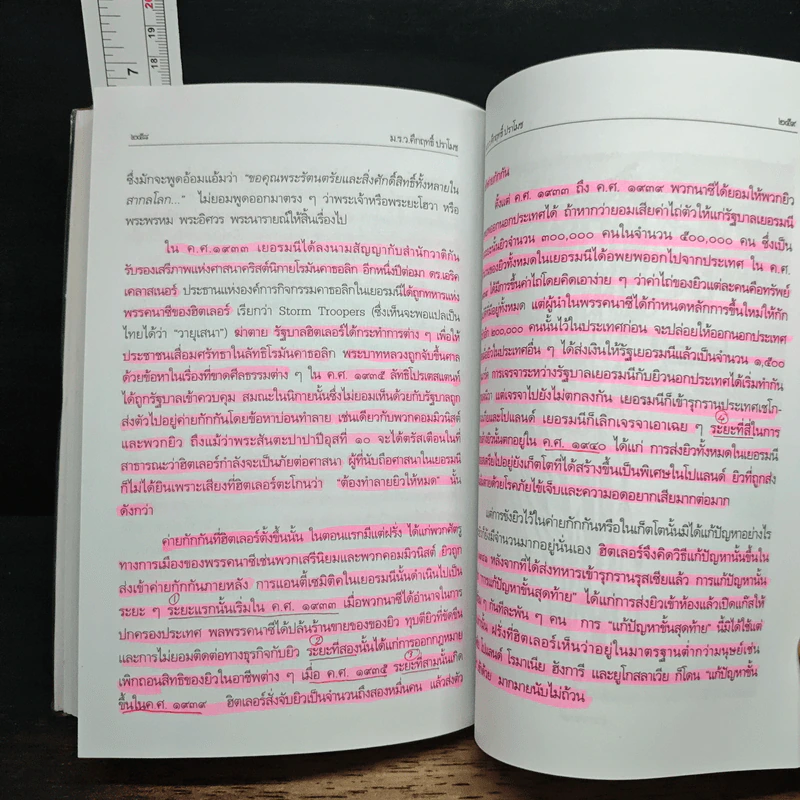 20
19
18
7
๒๕๘
ม.ร.ว.คึกฤทธิ์ ปราโมช
ซึ่งมักจะพูดอ้อมแอ้มว่า "ขอคุณพระรัตนตรัยและสิ่งศักดิ์สิทธิ์ทั้งหลายใน
สากลโลก..." ไม่ยอมพูดออกมาตรง ๆ ว่าพระเจ้าหรือพระยะโฮวา หรือ
พระพรหม พระอิศวร พระนารายณ์ให้สิ้นเรื่องไป
ใน ค.ศ.๑๙๓๓ เยอรมนีได้ลงนามสัญญากับสำนักวาติกัน
รับรองเสรีภาพแห่งศาสนาคริสต์นิกายโรมันคาธอลิก อีกหนึ่งปีต่อมา ดร.เอริค
เคลาสเนอร์ ประธานแห่งองค์การกิจกรรมคาธอลิกในเยอรมนีได้ถูกทหารแห่ง
พรรคนาซีของฮิตเลอร์ เรียกว่า Storm Troopers (ซึ่งเห็นจะพอแปลเป็น
ไทยได้ว่า "วายุเสนา") ฆ่าตาย รัฐบาลฮิตเลอร์ได้กระทำการต่าง ๆ เพื่อให้
ประชาชนเสื่อมศรัทธาในลัทธิโรมันคาธอลิก พระบาทหลวงถูกจับขึ้นศาล
ด้วยข้อหาในเรื่องที่ขาดศีลธรรมต่าง ๆ ใน ค.ศ. ๑๙๓๕ ลัทธิโปรเตสแตนท์
ได้ถูกรัฐบาลเข้าควบคุม สมณะในนิกายนั้นซึ่งไม่ยอมเห็นด้วยกับรัฐบาลถูก
ส่งตัวไปอยู่ค่ายกักกันโดยข้อหาบ่อนทำลาย เช่นเดียวกับพวกคอมมิวนิสต์
และพวกยิว ถึงแม้ว่าพระสันตะปาปาปีอุสที่ ๑๐ จะได้ตรัสเตือนในที่
สาธารณะว่าฮิตเลอร์กำลังจะเป็นภัยต่อศาสนา ผู้ที่นับถือศาสนาในเยอรมนี
ก็ไม่ได้ยินเพราะเสียงที่ฮิตเลอร์ตะโกนว่า "ต้องทำลายยิวให้หมด" นั้น
ดังกว่า
ค่ายกักกันที่ฮิตเลอร์ตั้งขึ้นนั้น ในตอนแรกมีแต่ฝรั่ง ได้แก่พวกศัตรู
ทางการเมืองของพรรคนาซีเช่นพวกเสรีนิยมและพวกคอมมิวนิสต์ ยิวถูก
ส่งเข้าค่ายกักกันภายหลัง การแอนตี้เซมิติคในเยอรมนีนั้นดำเนินไปเป็น
ระยะ ๆ ระยะแรกนั้นเริ่มใน ค.ศ. ๑๙๓๓ เมื่อพวกนาซีได้อำนาจในการ
ปกครองประเทศ พลพรรคนาซีได้ปล้นร้านขายของของยิว ทุบตียิวที่ขัดขืน
และการไม่ยอมติดต่อทางธุรกิจกับยิว ระยะที่สองนั้นได้แก่การออกกฎหมาย
เพิกถอนสิทธิของยิวในอาชีพต่าง ๆ เมื่อ ค.ศ. ๑๙๓๕ ระยะที่สามนั้นเกิด
ขึ้นในค.ศ. ๑๙๓๙ ฮิตเลอร์สั่งจับยิวเป็นจำนวนถึงสองหมื่นคน แล้วส่งตัว
คึกฤทธิ์ ปราโมช
๒๕๙
กักกัน
ตั้งแต่ ค.ศ. ๑๙๓๓ ถึง ค.ศ. ๑๙๓๙ พวกนาซีได้ยอมให้พวกยิว
นอกประเทศได้ ถ้าหากว่ายอมเสียค่าไถ่ตัวให้แก่รัฐบาลเยอรมนี
นั้นยิวจำนวน ๓๐๐,๐๐๐ คนในจำนวน ๕๐๐,๐๐๐ คน ซึ่งเป็น
ของยิวทั้งหมดในเยอรมนีได้อพยพออกไปจากประเทศ ใน ค.ศ.
ได้มีการขึ้นค่าไถ่โดยคิดเอาง่าย ๆ ว่าค่าไถ่ของยิวแต่ละคนคือทรัพย์
มีอยู่ทั้งหมด แต่ผู้นำในพรรคนาซีได้กำหนดหลักการขึ้นใหม่ให้กัก
๒๐๐,๐๐๐ คนนั้นไว้ในประเทศก่อน จะปล่อยให้ออกนอกประเทศ
ยิวในประเทศอื่น ๆ ได้ส่งเงินให้รัฐเยอรมนีแล้วเป็นจำนวน ๑,๕๐๐
การเจรจาระหว่างรัฐบาลเยอรมนีกับยิวนอกประเทศได้เริ่มทำกัน
แต่เจรจาไปยังไม่ตกลงกัน เยอรมนีก็เข้ารุกรานประเทศเชโก-
และโปแลนด์ เยอรมนีก็เลิกเจรจาเอาเฉย ๆ ระยะที่สี่ในการ
ยิวนั้นตกอยู่ใน ค.ศ. ๑๙๔๐ ได้แก่ การส่งยิวทั้งหมดในเยอรมนี
ไปอยู่ยังเก็ตโตที่ได้สร้างขึ้นเป็นพิเศษในโปแลนด์ ยิวที่ถูกส่ง
ตายด้วยโรคภัยไข้เจ็บและความอดอยากเสียมากต่อมาก
แต่การขังยิวไว้ในค่ายกักกันหรือในเก็ตโตนั้นมิได้แก้ปัญหาอย่างไร
ยังมีจำนวนมากอยู่นั่นเอง ฮิตเลอร์จึงคิดวิธีแก้ปัญหานั้นขึ้นใน
หลังจากที่ได้ส่งทหารเข้ารุกรานรุสเซียแล้ว การแก้ปัญหานั้น
"การแก้ปัญหาขั้นสุดท้าย" ได้แก่การส่งยิวเข้าห้องแล้วเปิดแก๊สให้
ๆ กันทีละพัน ๆ คน การ "แก้ปัญหาขั้นสุดท้าย" นี้มิได้ใช้แต่
นั้น ฝรั่งที่ฮิตเลอร์เห็นว่าอยู่ในมาตรฐานต่ำกว่ามนุษย์เช่น
โปแลนด์ โรมาเนีย ฮังการี และยูโกสลาเวีย ก็โดน "แก้ปัญหาขั้น
ด้วย มากมายนับไม่ถ้วน